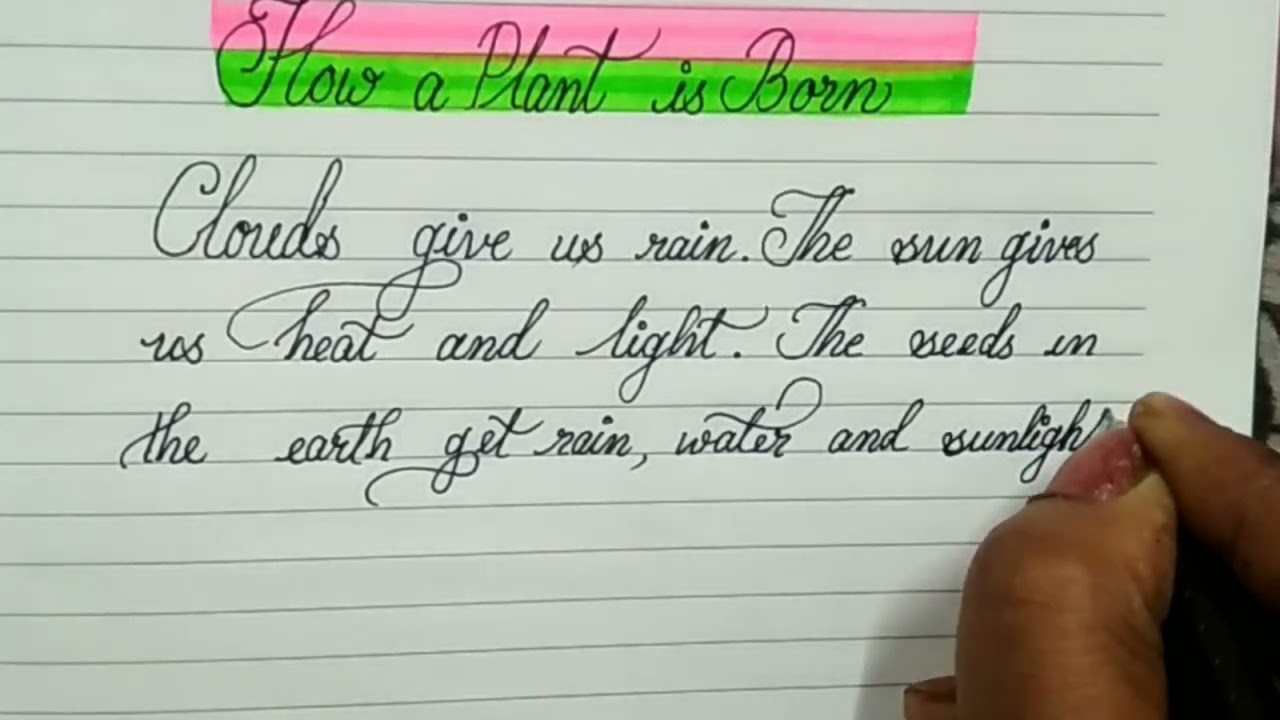 How a Plant is Born
Clouds give us rain. The sun gives
us heat and light. The seeds in
the earth get rain, water and sunligh